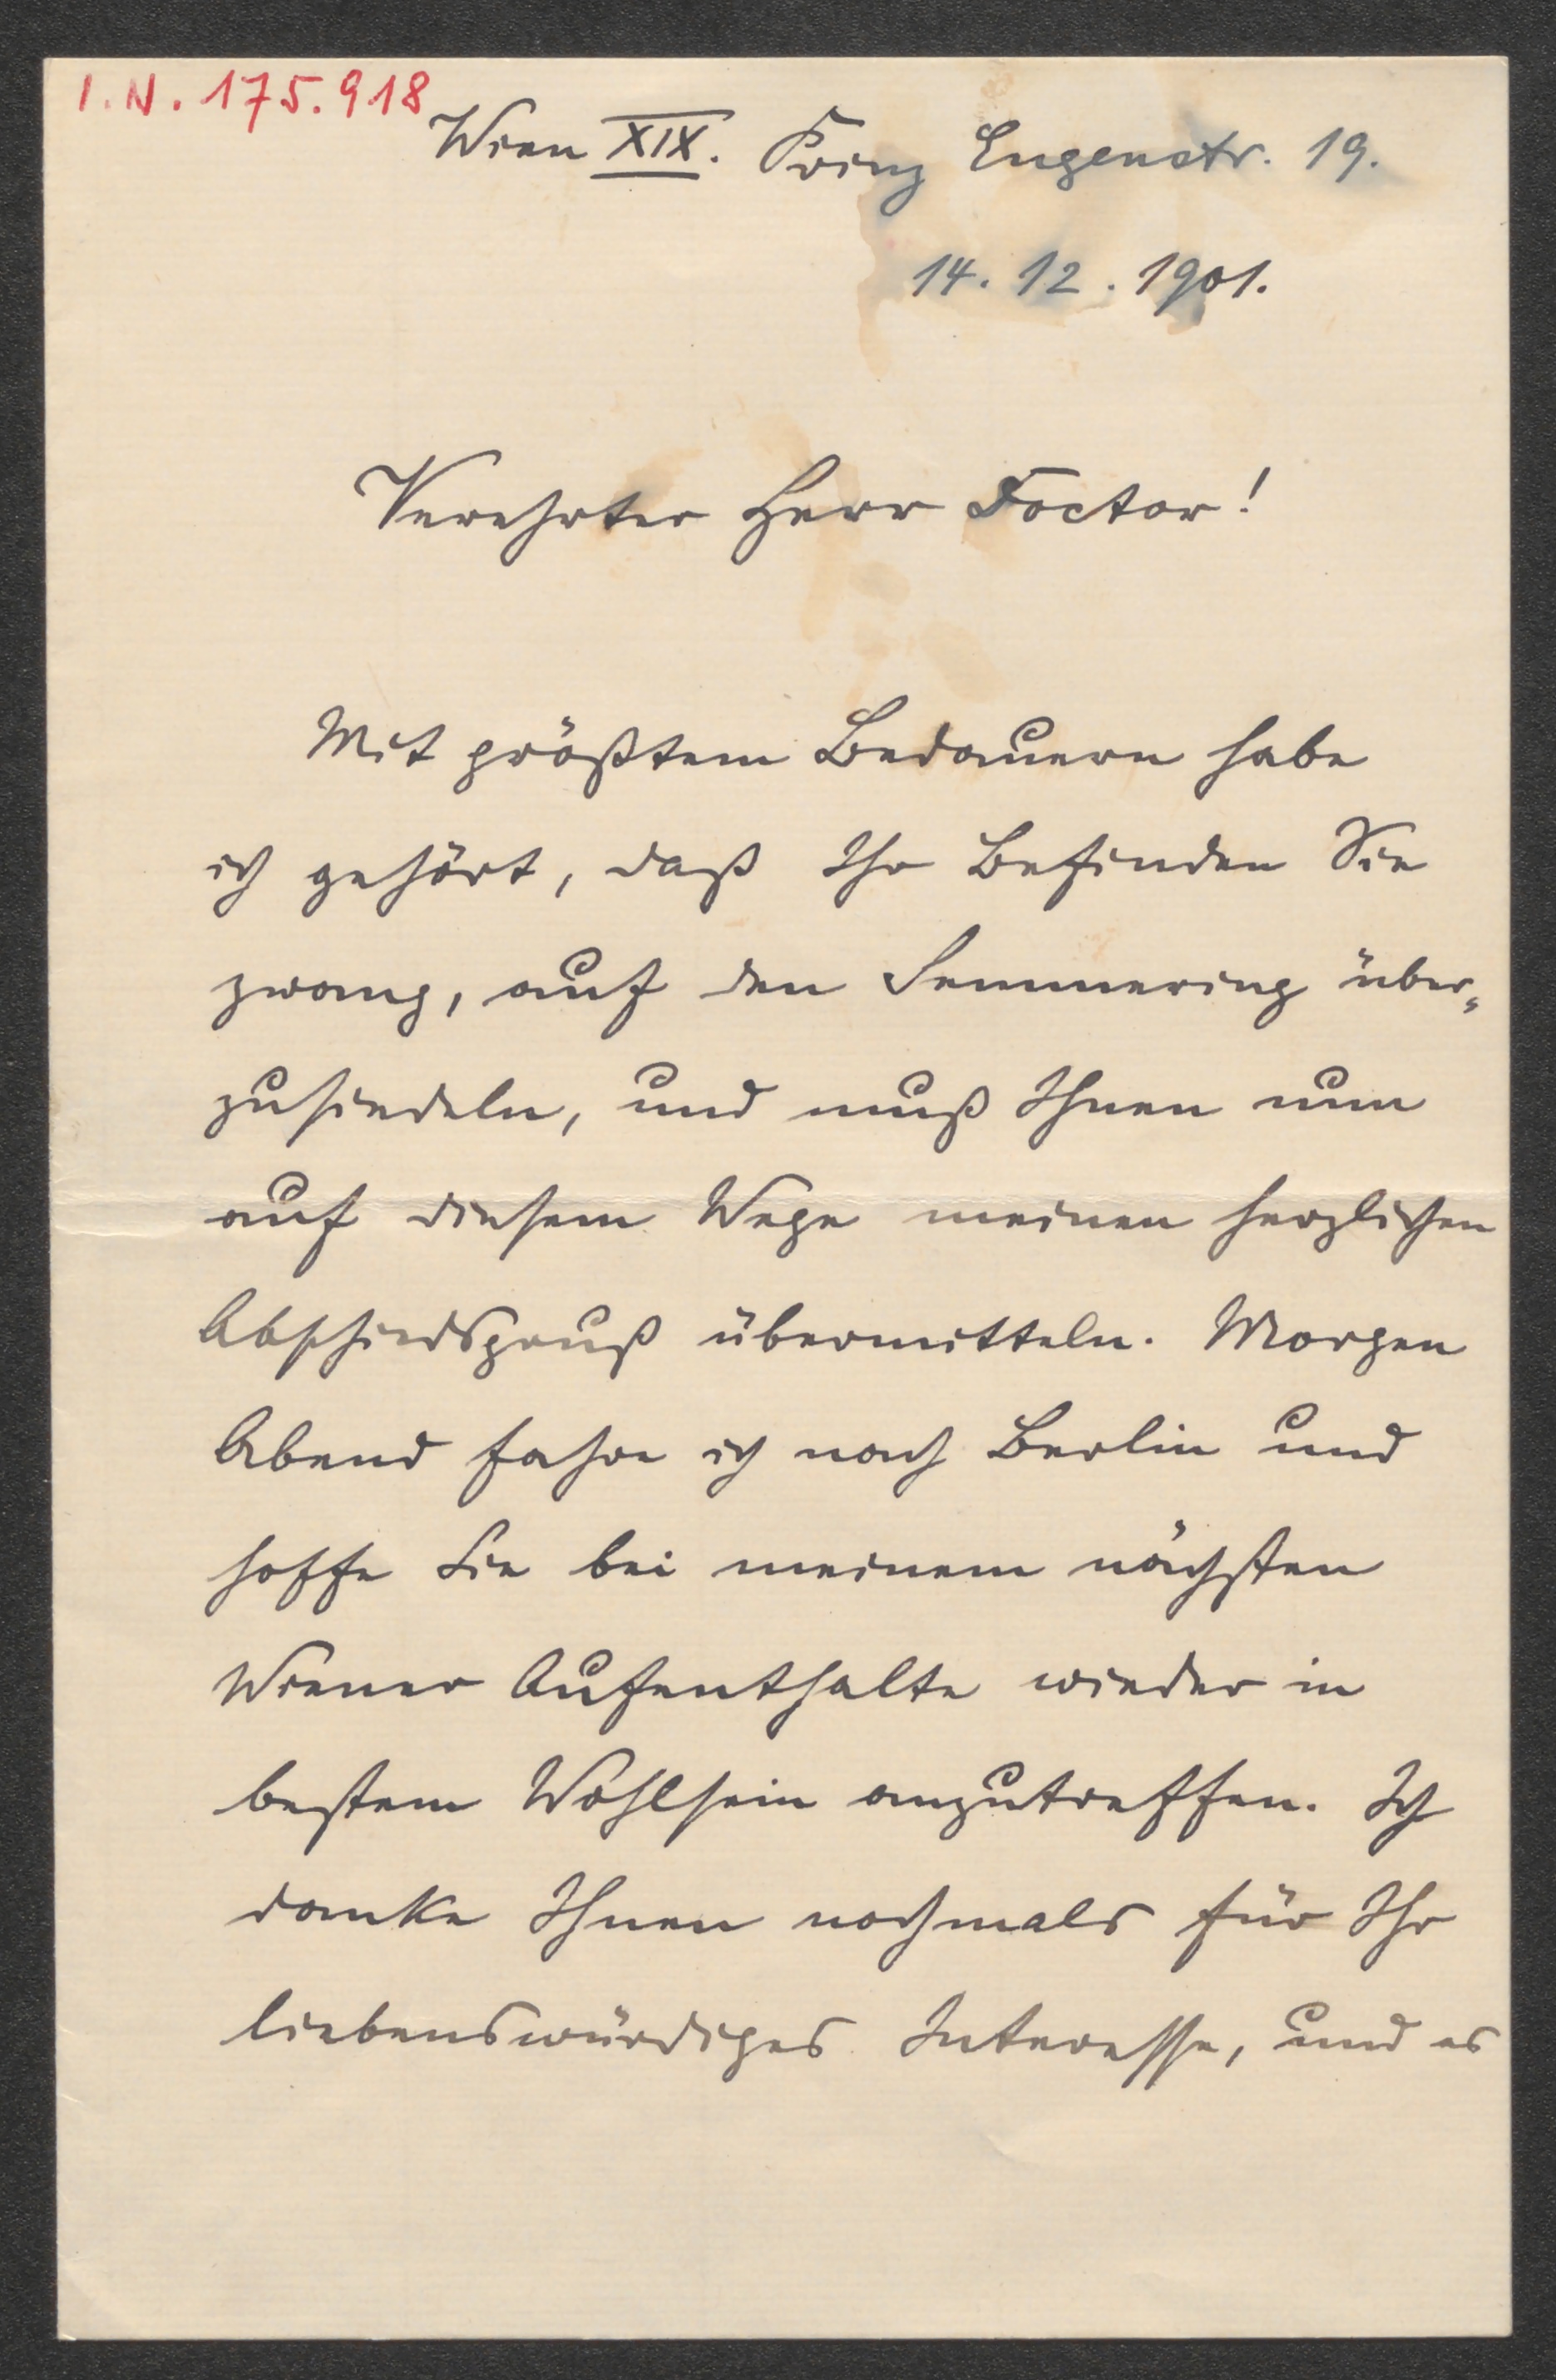 I.N. 175.918
Wien XIX. Prinz Eugenstr. 19.
14. 12. 1901.
Verehrter Herr Doctor!
Mit größtem Bedauern habe
ich gehört, daß Ihr Befinden Sie
zwang, auf den Semmering über-
zusiedeln, und muß Ihnen nun
auf diesem Wege meinen herzlichen
Abschiedsgruß übermitteln. Morgen
Abend fahre ich nach Berlin und
hoffe Sie bei meinem nächsten
Wiener Aufenthalte wieder in
bestem Wohlsein anzutreffen. Ich
danke Ihnen nochmals für Ihr
liebenswürdiges Interesse, und es